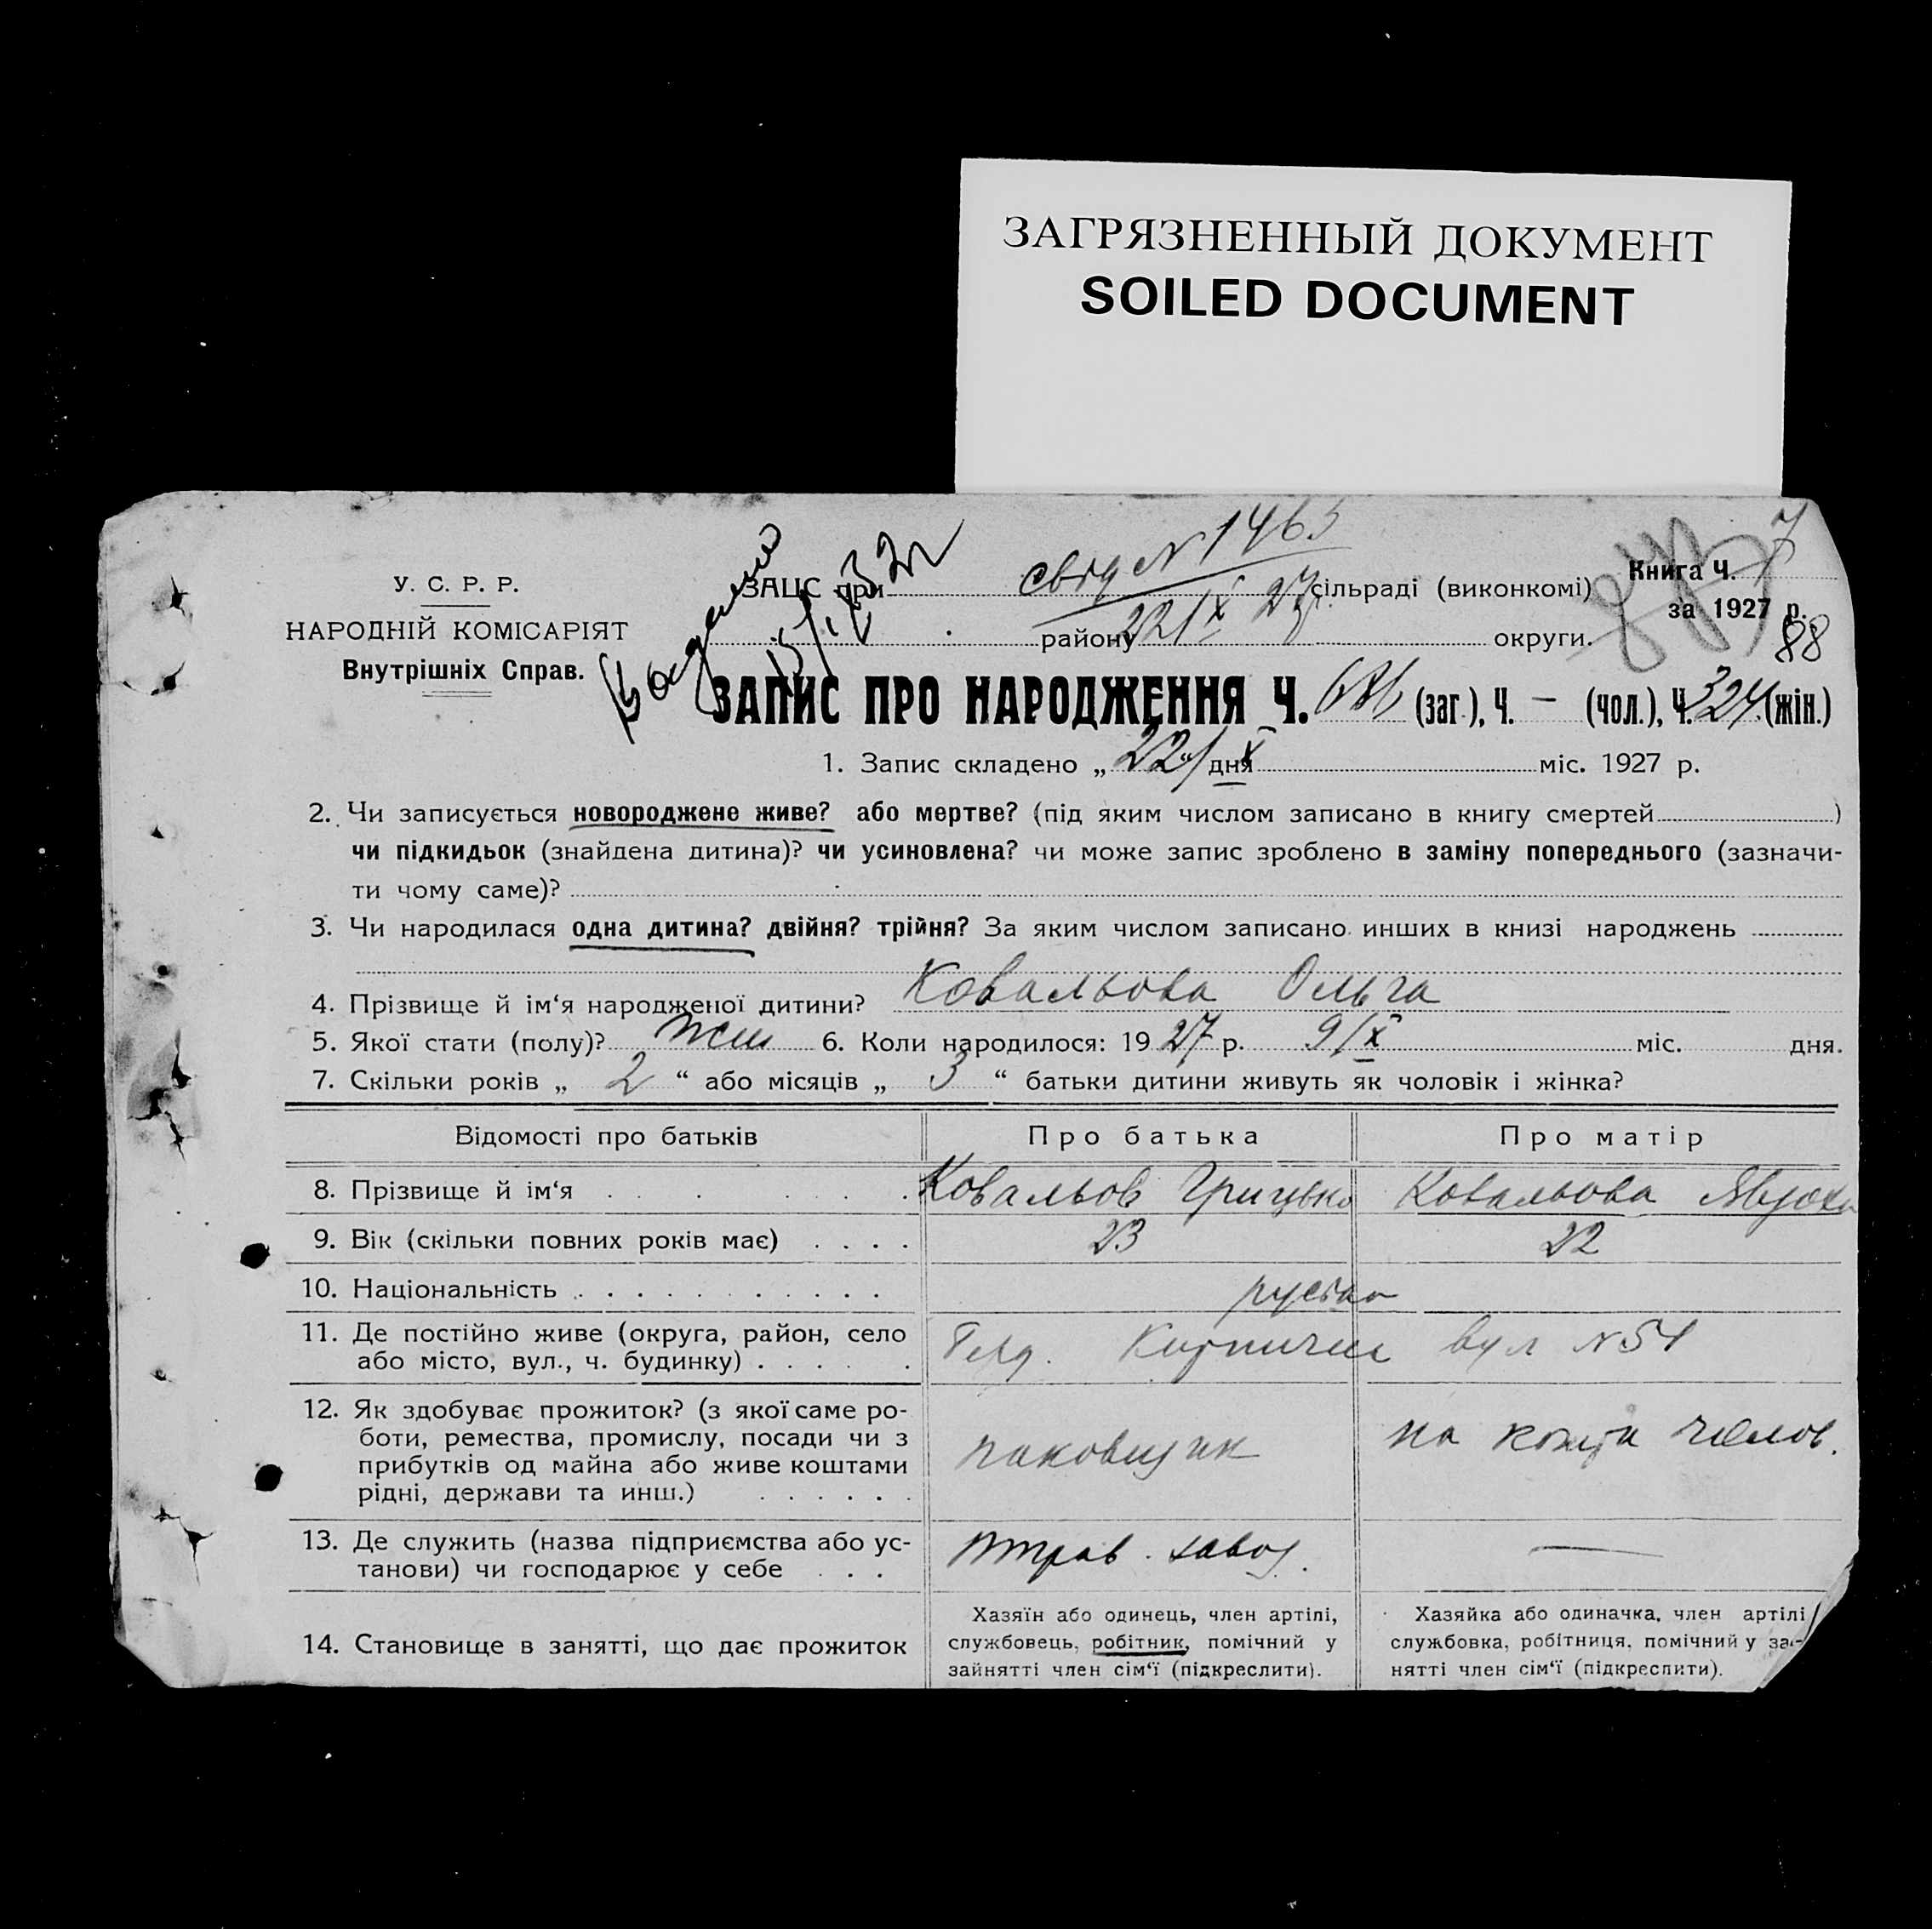 ЗАГРЯЗНЕННЫЙ ДОКУМЕНТ
SOILED DOCUMENT
У. С. Р. Р.
НАРОДНІЙ КОМІСАРІЯТ
Внутрішніх Справ.
свід N 1465
ЗАЦС при сільраді (виконкомі)
22/X 27 р.
району округи.
Книга Ч. 7
за 1927 р.
88
ЗАПИС ПРО НАРОДЖЕННЯ Ч. 686 (заг.), Ч. — (чол.), Ч. 324 (жін.)
1. Запис складено „ 22/X дня міс. 1927 р.
2. Чи записується новороджене живе? або мертве? (під яким числом записано в книгу смертей )
чи підкидьок (знайдена дитина)? чи усиновлена? чи може запис зроблено в заміну попереднього (зазначи-
ти чому саме)?
3. Чи народилася одна дитина? двійня? трійня? За яким числом записано инших в книзі народжень
4. Прізвище й ім‘я народженої дитини? Ковальова Ольга
5. Якої стати (полу)? жін 6. Коли народилося: 1927 р. 9/X міс. дня.
7. Скільки років „ 2 “ або місяців „ 3 “ батьки дитини живуть як чоловік і жінка?
Відомості про батьків Про батька Про матір
8. Прізвище й ім‘я Ковальов Грицько Ковальова Явдоха
9. Вік (скільки повних років має) 23 22
10. Національність
11. Де постійно живе (округа, район, село
або місто, вул., ч. будинку) вул N 54
12. Як здобуває прожиток? (з якої саме ро-
боти, ремества, промислу, посади чи з
прибутків од майна або живе коштами
рідні, держави та инш.)
паковщик на кошти чолов.
13. Де служить (назва підприємства або ус-
танови) чи господарює у себе завод. —
14. Становище в занятті, що дає прожиток
Хазяїн або одинець, член артілі,
службовець, робітник, помічний у
зайнятті член сім‘ї (підкреслити).
Хазяйка або одиначка, член артілі
службовка, робітниця, помічний у за-
нятті член сім‘ї (підкреслити).